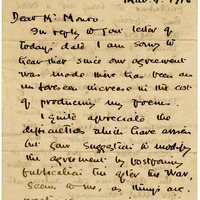 Dear Mr Monro
In reply to your letter of
today's date I am sorry to
hear that since our agreement
was made there has been an
unforeseen increase in the cost
of producing my poems.
I quite appreciate the
difficulties which have arisen
but your suggestion to modify
this agreement by postponing
publication till after the War,
seems to me, as things are,